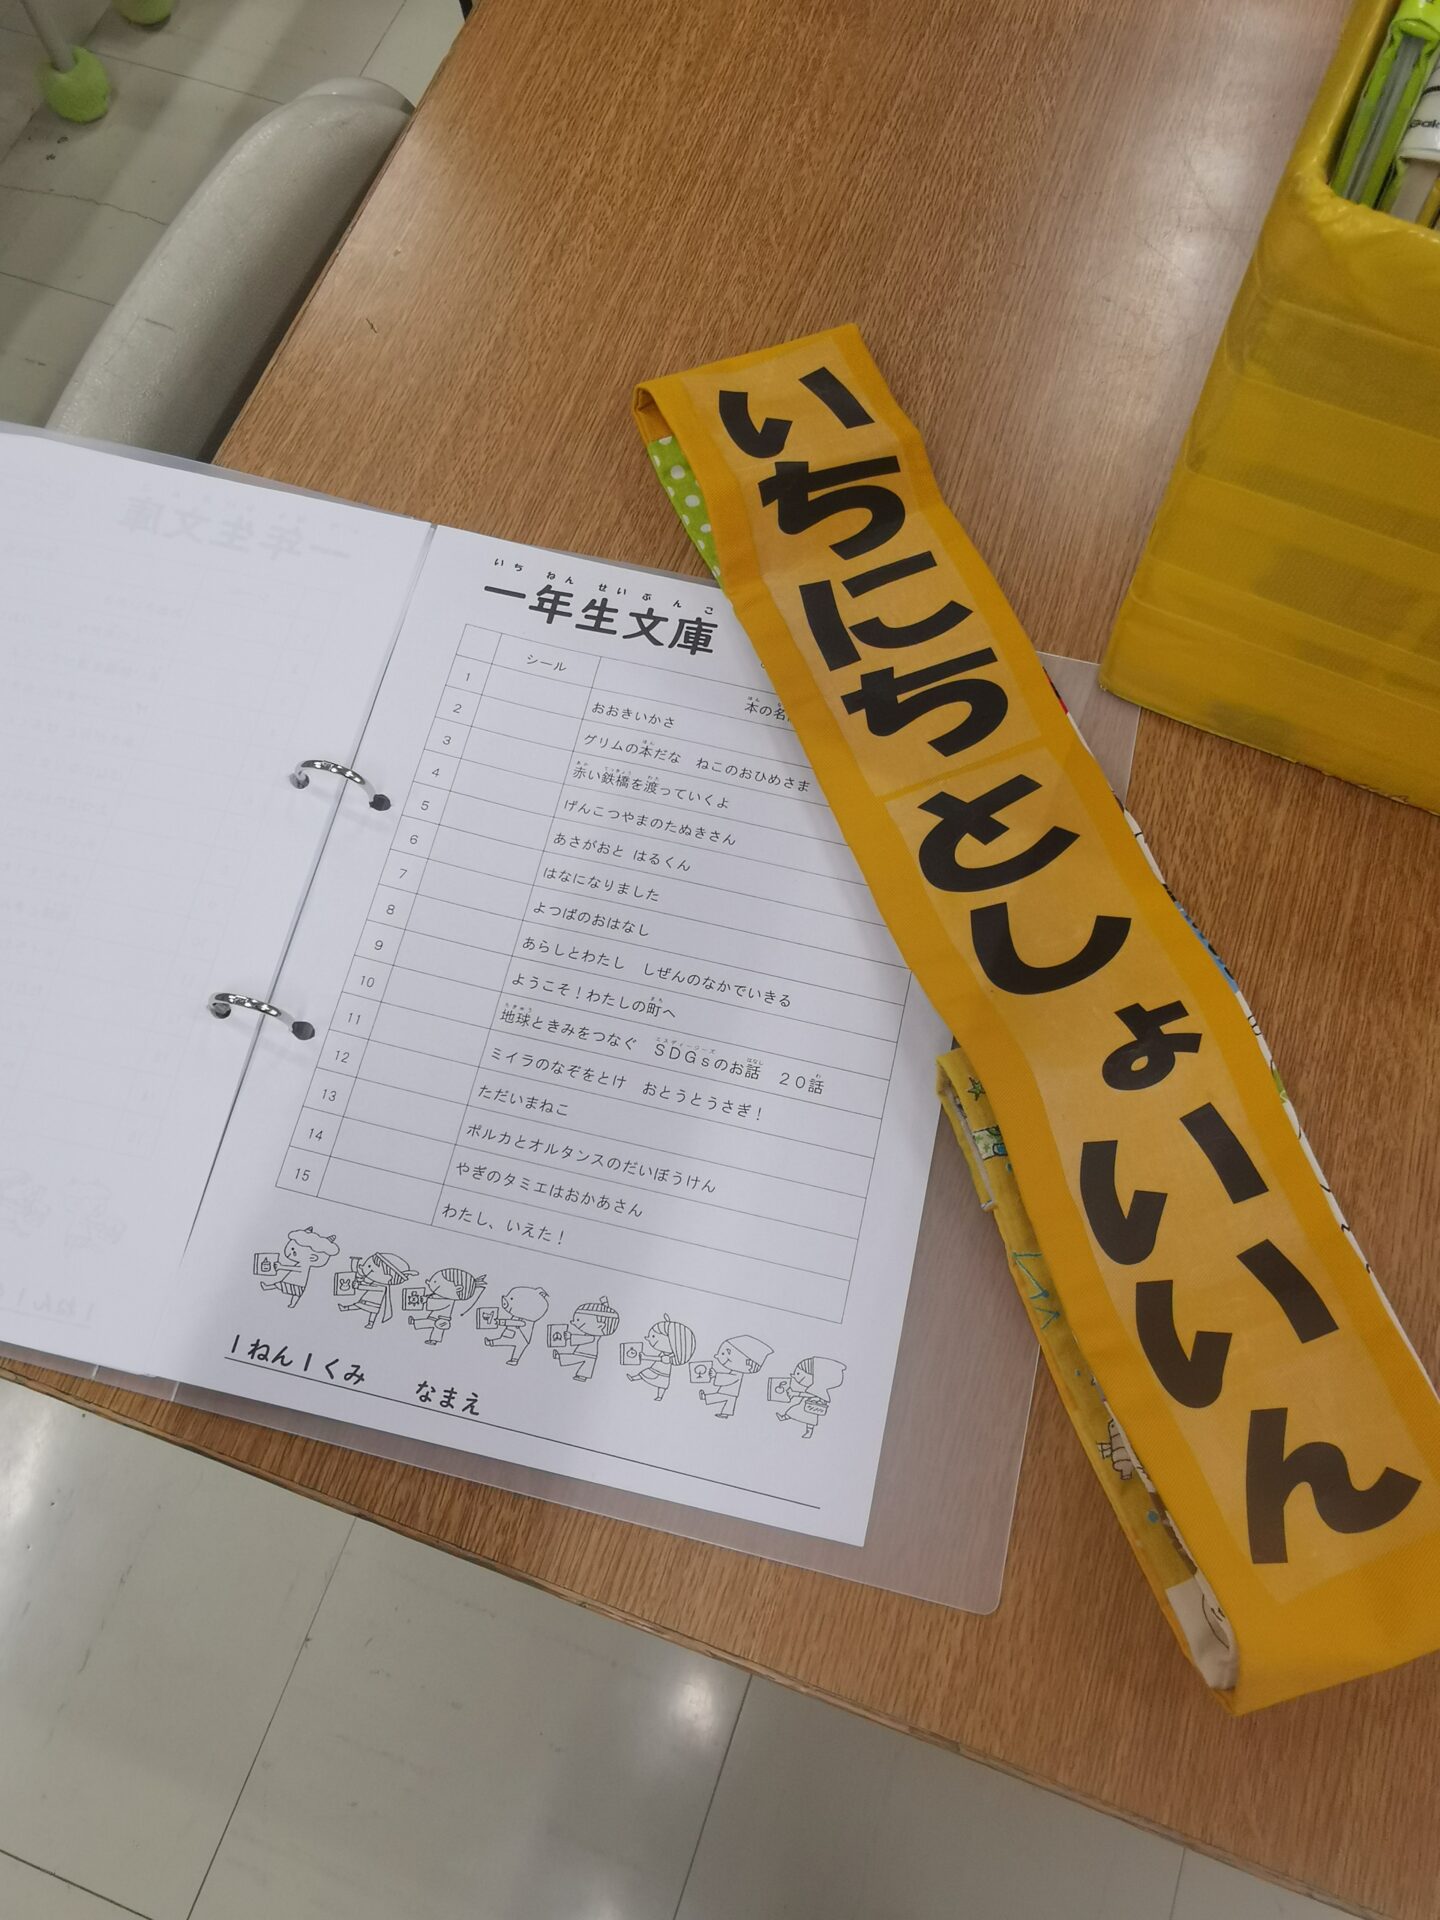 いちにちとしょいいん
いち ねん せい ぶん こ
一年生文庫
シール
本の名
1 おおきいかさ
2 グリムの本だな ねこのおひめさま
3 赤い鉄橋を渡っていくよ
4 げんこつやまのたぬきさん
5 あさがおと はるくん
6 はなになりました
7 よつばのおはなし
8 あらしとわたし しぜんのなかでいきる
9 ようこそ！わたしの町へ
10 地球ときみをつなぐ SDGsのお話 20話
11 ミイラのなぞをとけ おとうとうさぎ！
12 ただいまねこ
13 ポルカとオルタンスのだいぼうけん
14 やぎのタミエはおかあさん
15 わたし、いえた！
1ねん1くみ なまえ